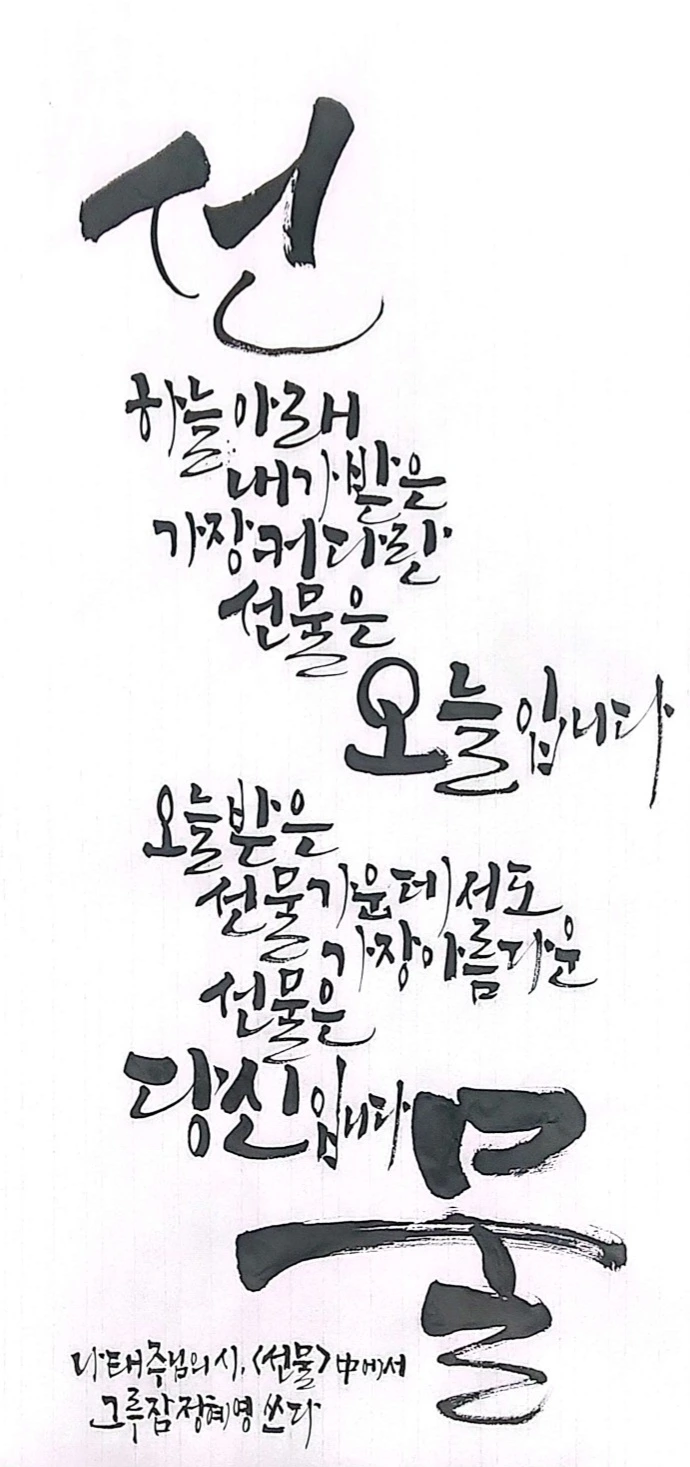 선
하늘 아래
내가 받은
가장 커다란
선물은
오늘입니다
오늘 받은
선물 가운데서도
가장 아름다운
선물은
당신입니다
물
나태주님의 시, <선물> 中에서
그루잠 정혜영 쓰다